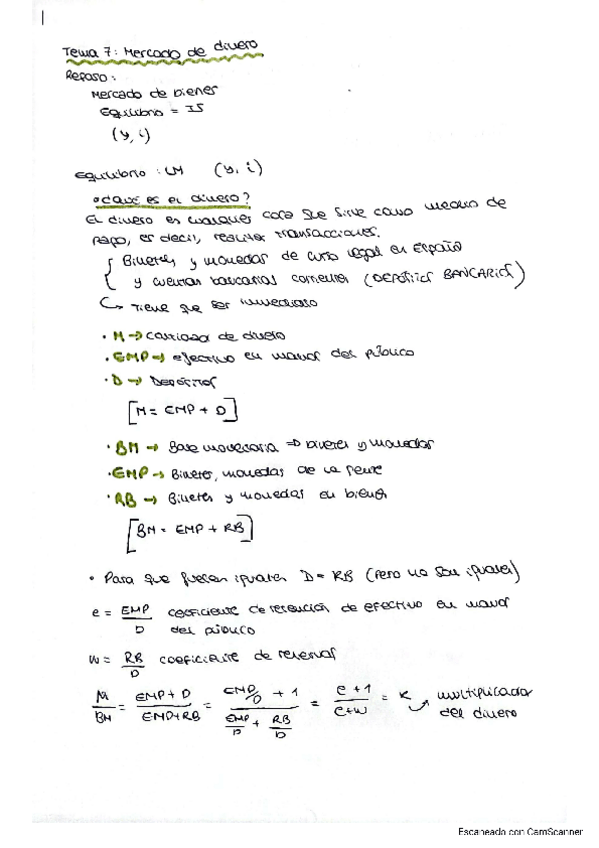 Tema 7: Mercado de dinero
Repaso:
Mercado de bienes
Equilibrio = IS
(y, i)
Equilibrio: LM (y, i)
¿Qué es el dinero?
El dinero es cualquier cosa que sirve como medio de
pago, es decir, realizar transacciones.
Billetes y monedas de curso legal en España
y cuentas bancarias corrientes (DEPÓSITOS BANCARIOS)
↳ Tiene que ser inmediato
• M → cantidad de dinero
• EMP → efectivo en manos del público
• D → Depósitos
[M = EMP + D]
• BM → Base monetaria => billetes y monedas
• EMP → Billetes, monedas de la gente
• RB → Billetes y monedas en bienes
[BM = EMP + RB]
• Para que fuesen iguales D = RB (Pero no son iguales)
e = EMP/D coeficiente de retención de efectivo en manos
del público
w = RB/D coeficiente de reservas
M/BM = (EMP + D)/(EMP+RB) = (EMP/D + 1)/(EMP/D + RB/D) = (e + 1)/(e+w) = K → multiplicador
del dinero
Escaneado con CamScanner